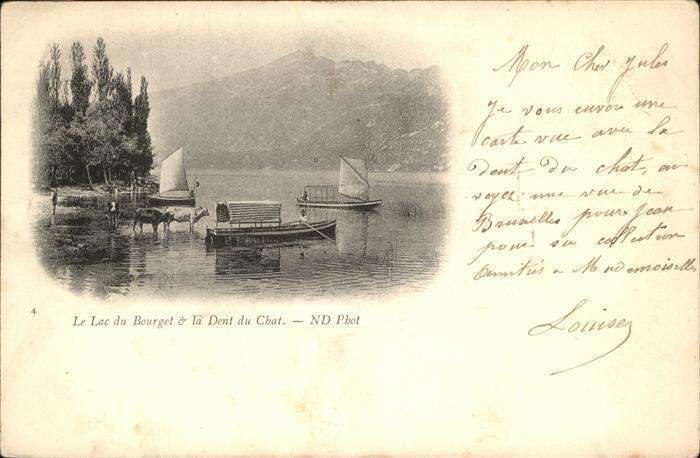 Mon Cher Jules
Je vous envoie une
carte vue avec la
dent du chat, en
voyez une vue de
Bruxelles pour Jean
pour sa collection
Amitiés a Mademoiselle
Louise
4
Le Lac du Bourget & la Dent du Chat. — ND Phot